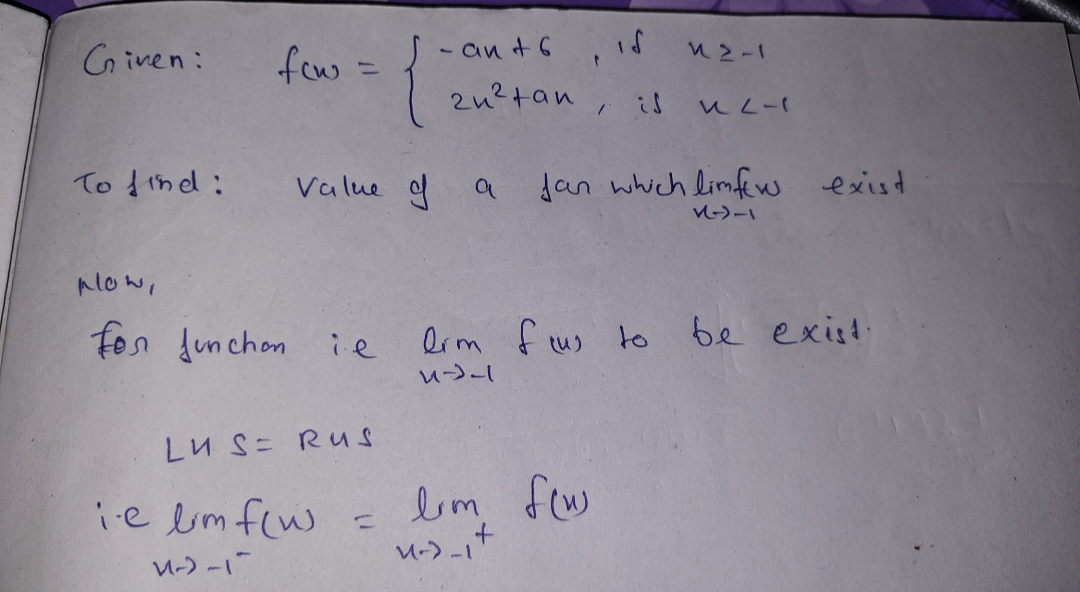 Given: f(x) = { -ax + 6 , if x ≥ -1
2x² + ax , if x < -1
To find: Value of a for which lim f(x) exist
x→-1
Now,
for function i.e lim f(x) to be exist.
x→-1
LHS = RHS
i.e lim f(x) = lim f(x)
x→-1⁻ x→-1⁺